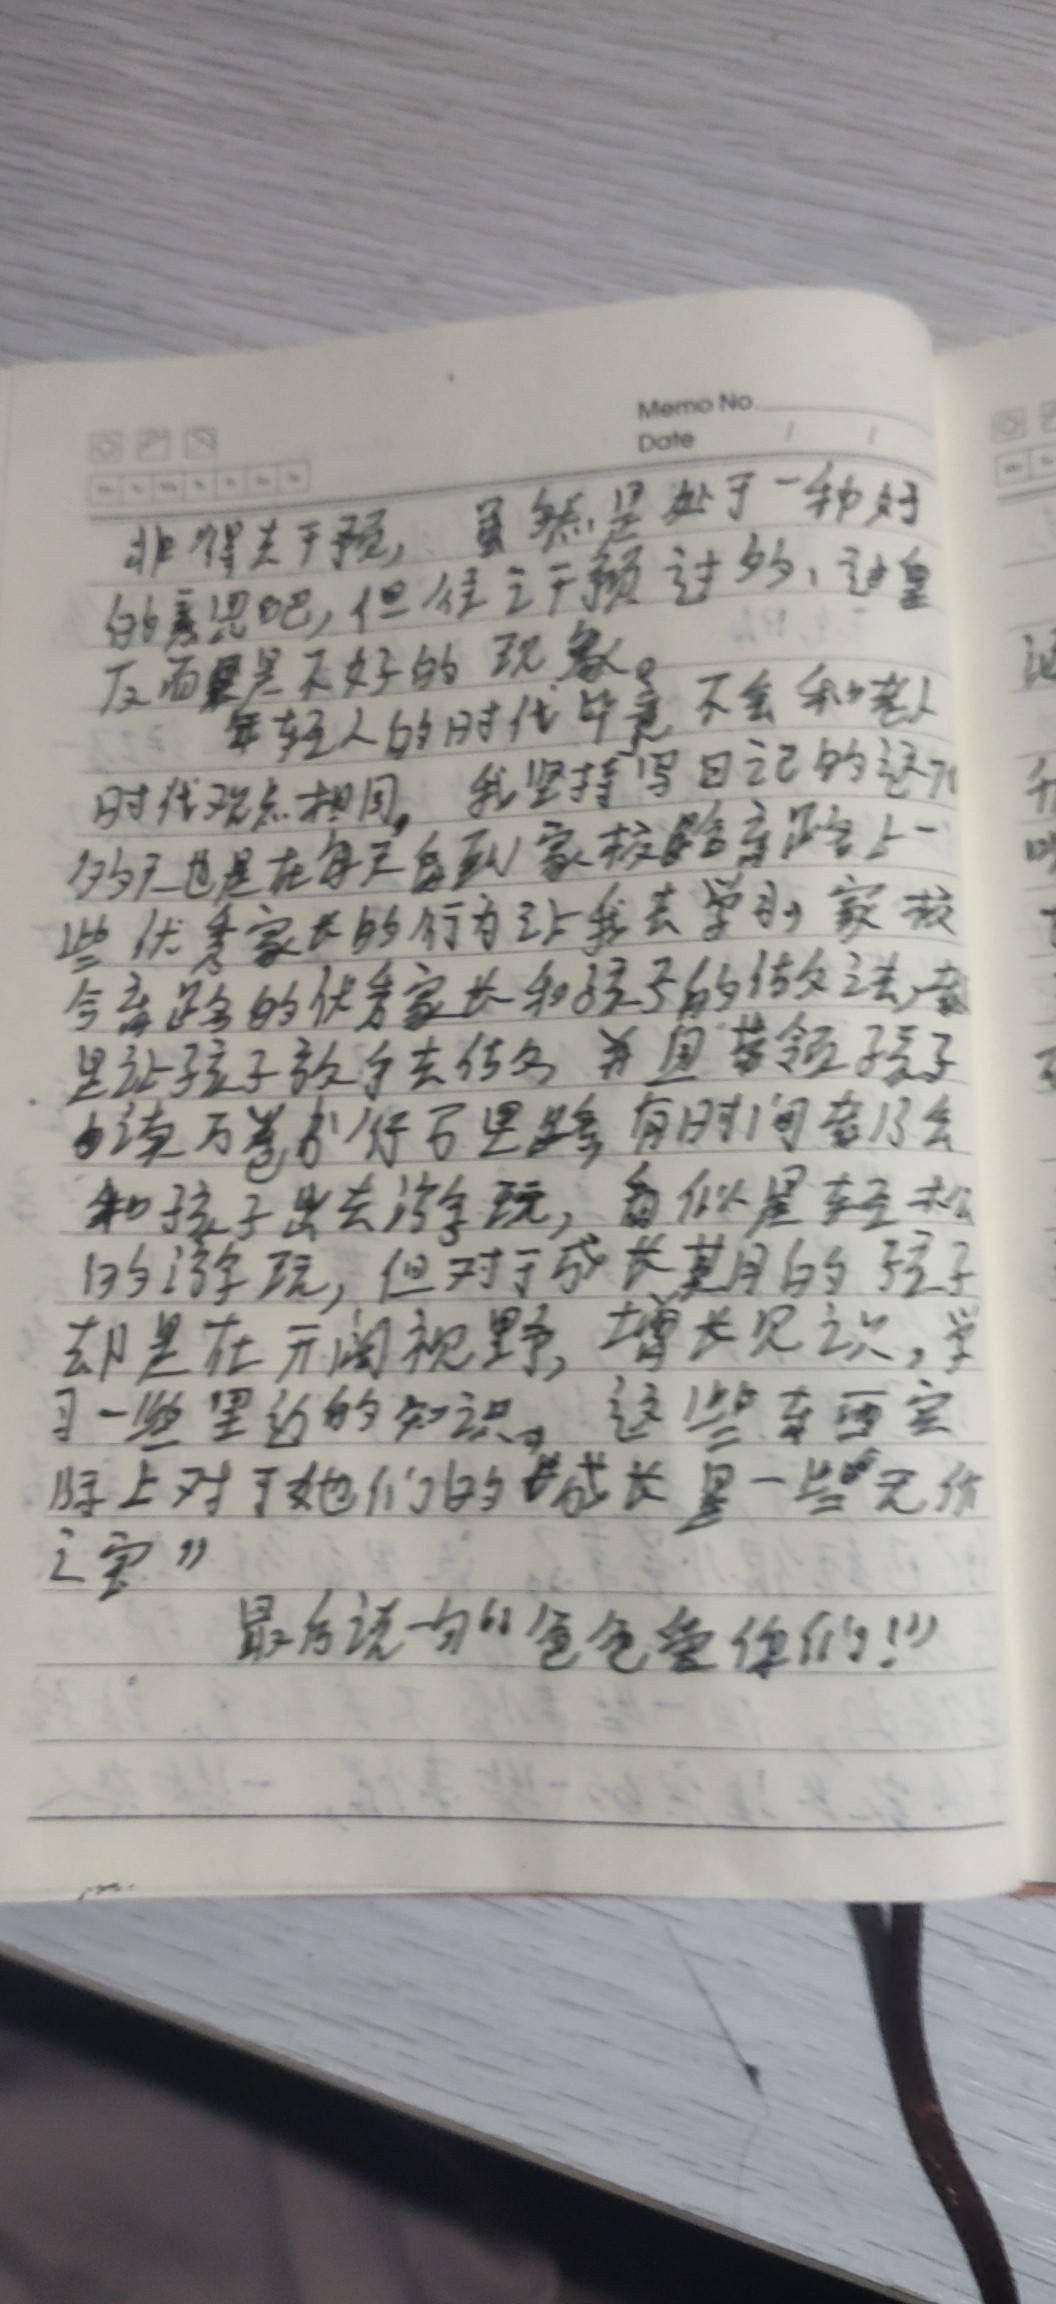 Memo No
Date / /
非得去干预，虽然是处于一种好
的意思吧，但往之干预过的，这
反而是不好的现象。
年轻人的时代毕竟不会和老人
时代观点相同。我坚持写日记的这
多天也是在每天看到家校路上一
些优秀家长的行为让我去学习，家校
路的优秀家长和孩子的做法，
是让孩子放手去做 并且带领孩子
读万卷书行万里路 有时间会
和孩子出去游玩，看似是轻松
的游玩，但对于成长期的孩子
却是在开阔视野，增长见识，学
习一些里的知识。这些东西实
际上对于她们的成长是一些无价
之宝”
最后说一句“爸爸爱你们！”